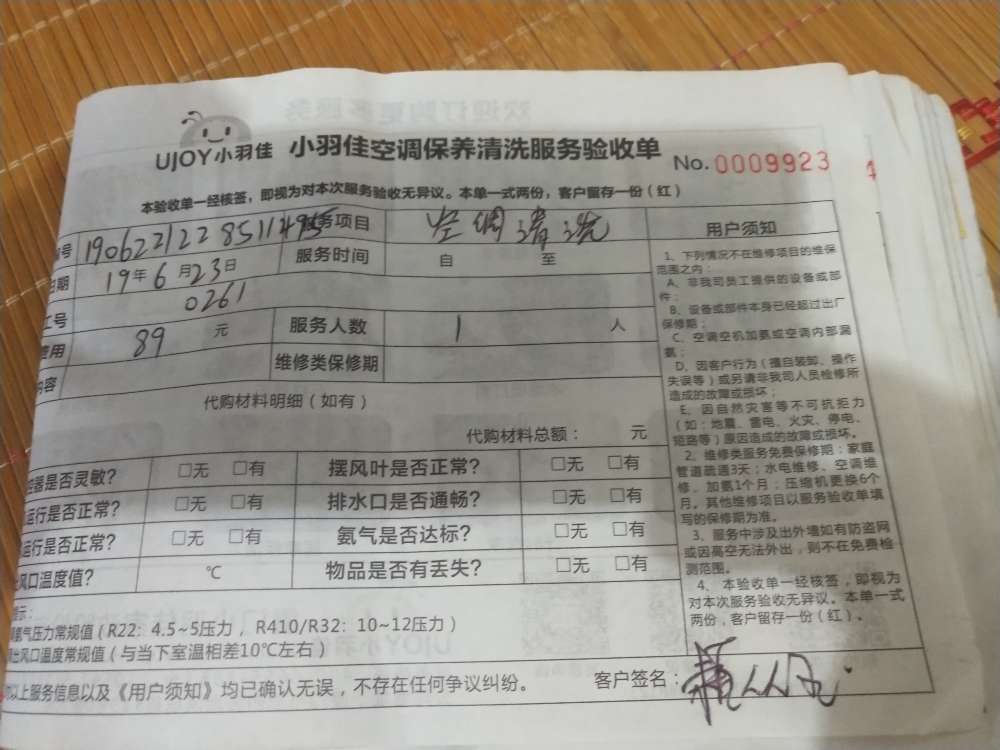 UJOY小羽佳 小羽佳空调保养清洗服务验收单 No.0009923
本验收单一经核签，即视为对本次服务验收无异议。本单一式两份，客户留存一份（红）
号 190622122851149 服务项目 空调清洗
期 19年6月23日 服务时间 自 至
工号 0261
费用 89 元 服务人数 1 人
内容 维修类保修期
代购材料明细（如有）
代购材料总额： 元
器是否灵敏? □无 □有 摆风叶是否正常? □无 □有
运行是否正常? □无 □有 排水口是否通畅? □无 □有
运行是否正常? □无 □有 氨气是否达标? □无 □有
风口温度值? ℃ 物品是否有丢失? □无 □有
提示：
氨气压力常规值（R22：4.5~5压力，R410/R32：10~12压力）
出风口温度常规值（与当下室温相差10℃左右）
以上服务信息以及《用户须知》均已确认无误，不存在任何争议纠纷。 客户签名：
用户须知
1、下列情况不在维修项目的维保
范围之内：
A、非我司员工提供的设备或部
件；
B、设备或部件本身已经超过出厂
保修期；
C、空调空机加氨或空调内部漏
氨；
D、因客户行为（擅自装卸、操作
失误等）或另请非我司人员检修所
造成的故障或损坏；
E、因自然灾害等不可抗拒力
（如：地震、雷电、火灾、停电、
短路等）原因造成的故障或损坏。
2、维修类服务免费保修期：家庭
管道疏通3天；水电维修、空调维
修、加氨1个月；压缩机更换6个
月。其他维修项目以服务验收单填
写的保修期为准。
3、服务中涉及出外墙如有防盗网
或因高空无法外出，则不在免费检
测范围。
4、本验收单一经核签，即视为
对本次服务验收无异议。本单一式
两份，客户留存一份（红）。